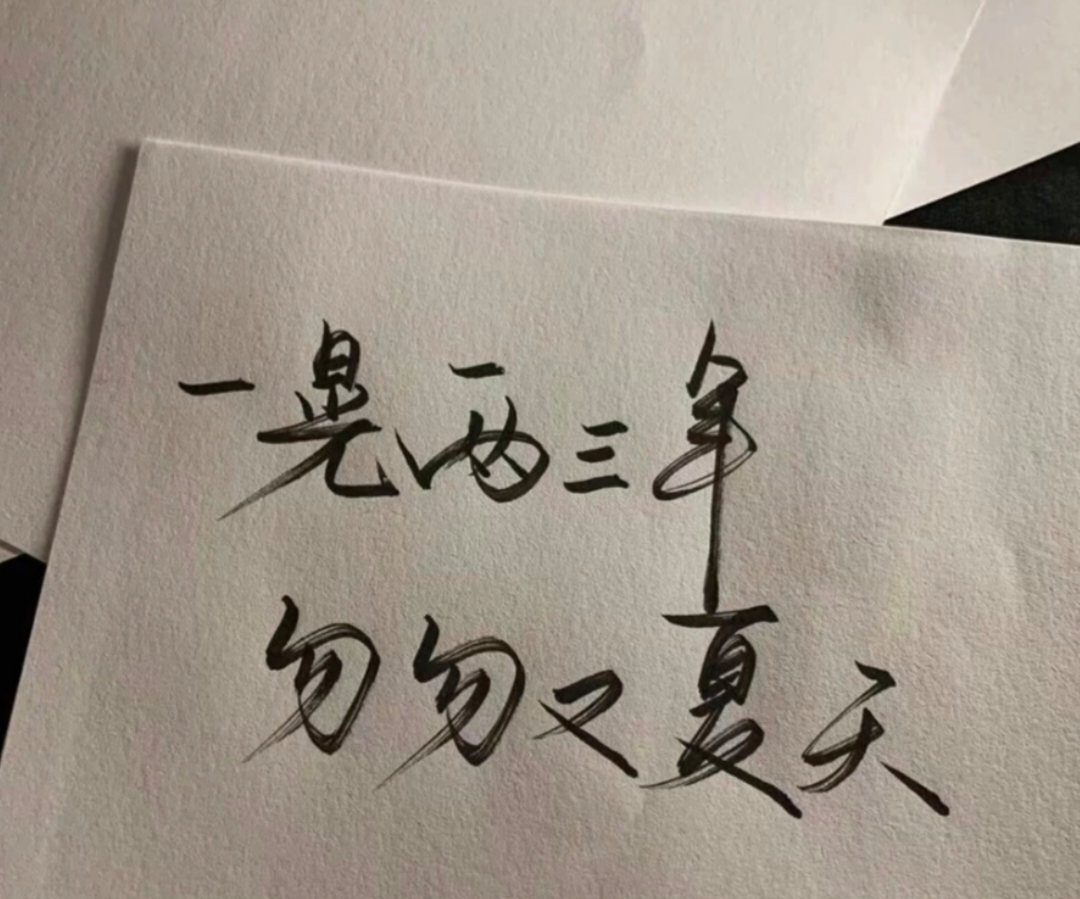 一晃两三年
匆匆又夏天